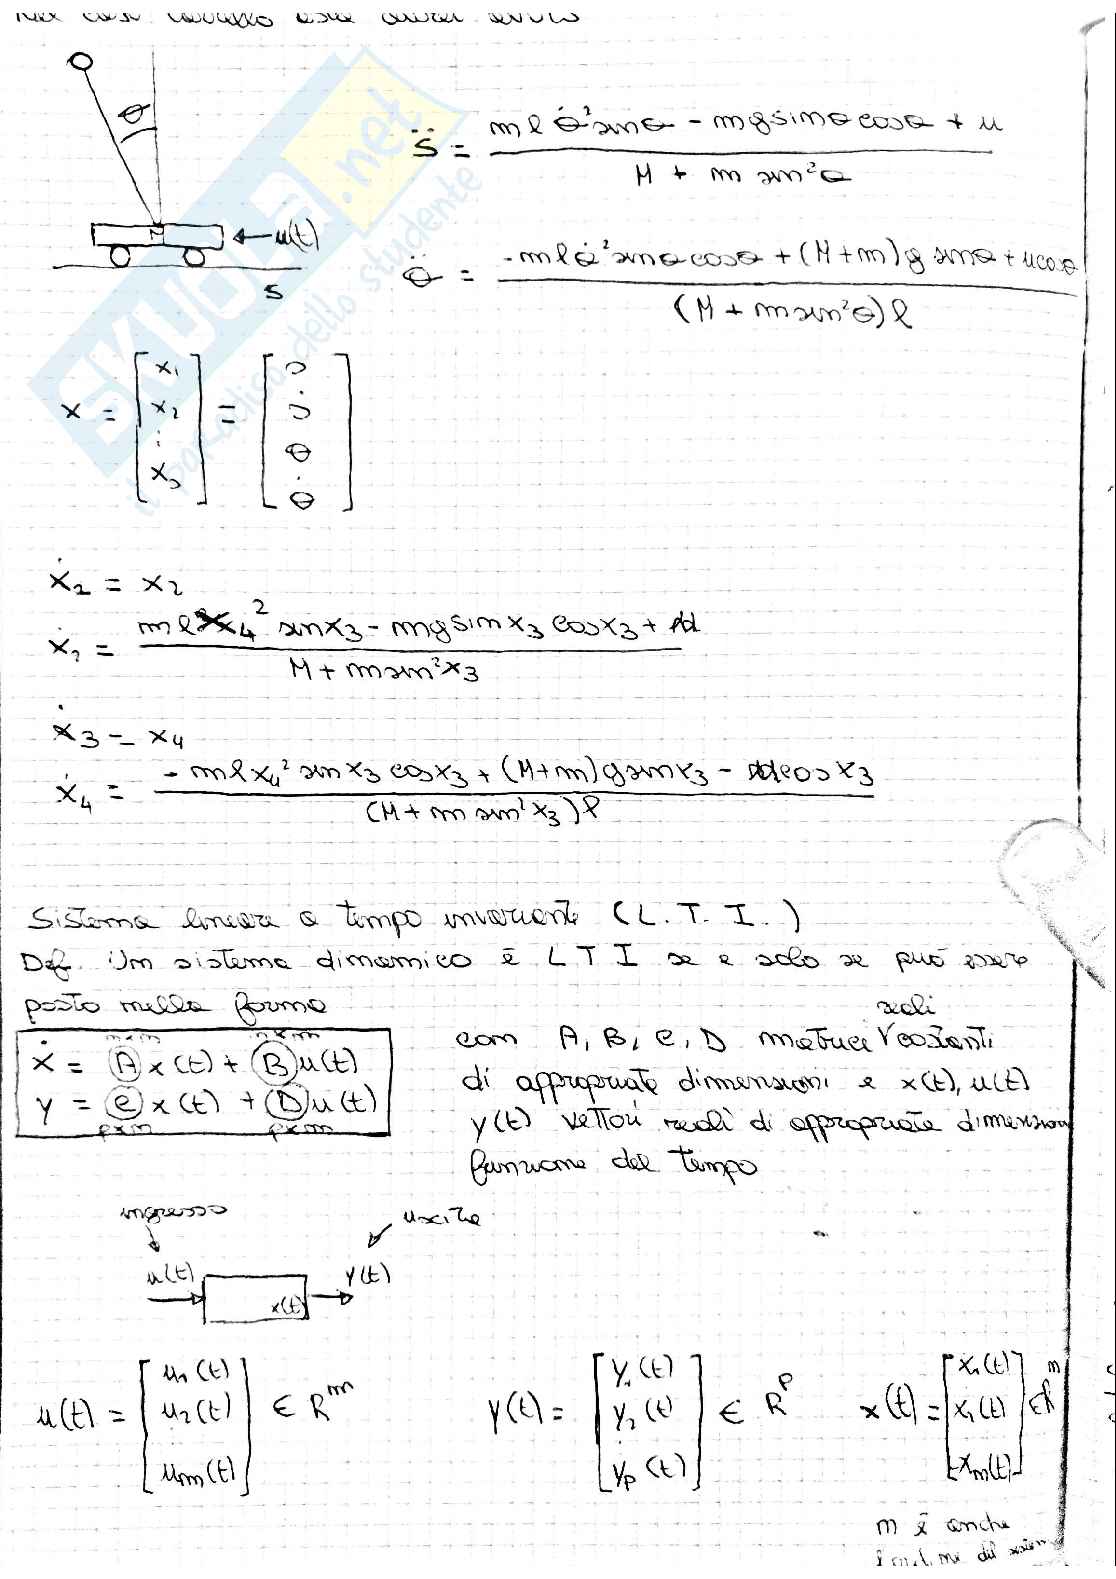 θ
M
u(t)
s
s̈ = (m l θ̇² sinθ - m g sinθ cosθ + u) / (M + m sin²θ)
θ̈ = (- m l θ̇² sinθ cosθ + (M+m) g sinθ + u cosθ) / ((M + m sin²θ) l)
SKUOLA.net
il paradiso dello studente
x = [x₁ x₂ ⋮ x₅] = [s ṡ θ θ̇]
ẋ₂ = x₂
ẋ₂ = (m l x₄² sin x₃ - m g sin x₃ cos x₃ + u) / (M + m sin² x₃)
ẋ₃ = x₄
ẋ₄ = (- m l x₄² sin x₃ cos x₃ + (M+m) g sin x₃ - u cos x₃) / ((M + m sin² x₃) l)
Sistema lineare a tempo invariante (L.T.I.)
Def. Un sistema dinamico è LTI se e solo se può essere
posto nella forma
nxn nxm
ẋ = A x(t) + B u(t)
y = C x(t) + D u(t)
pxn pxm
reali
con A, B, C, D matrici V costanti
di appropriate dimensioni e x(t), u(t)
y(t) vettori reali di appropriate dimensioni
funzione del tempo
ingresso
uscite
u(t)
x(t)
y(t)
u(t) = [u₁(t) u₂(t) um(t)] ∈ Rᵐ
y(t) = [y₁(t) y₂(t) yp(t)] ∈ Rᵖ
x(t) = [x₁(t) x₁(t) xn(t)] ∈ Rⁿ
n è anche
l'ordine del